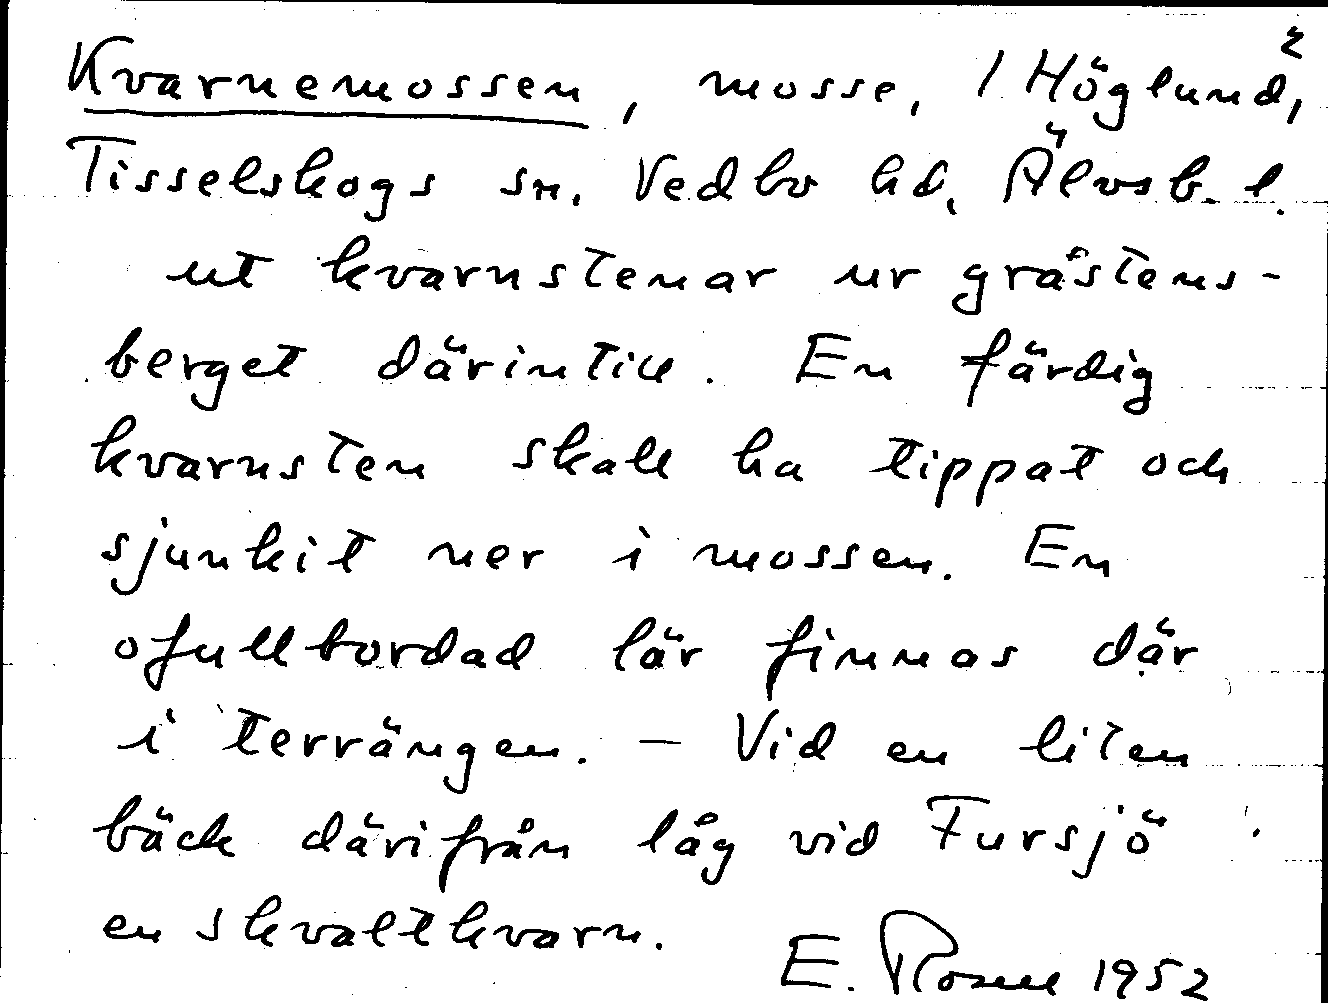 2
Kvarnemossen, mosse, 1 Höglund,
Tisselskogs sn. Vedbo hd, Älvsb. l.
ut kvarnstenar ur gråstens-
berget därintill. En färdig
kvarnsten skall ha tippat och
sjunkit ner i mossen. En
ofullbordad lär finnas där
i terrängen. – Vid en liten
bäck därifrån låg vid Fursjö
en skvaltkvarn.
E. Rosell 1952